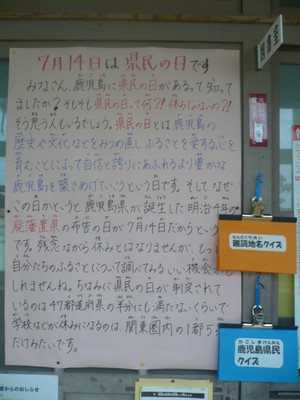 7月14日は 県民の日です
みなさん、鹿児島に県民の日があるって知って
ましたか？そもそも県民の日って何?!休みじゃないの?!
そう思う人もいるでしょう。県民の日とは鹿児島の
歴史や文化などをみつめ直しふるさとを愛する心を
育むことによって自信と誇りにあふれるより豊かな
鹿児島を築きあげていこうという日です。そして、なぜ
この日かというと鹿児島県が誕生した明治4年の
廃藩置県の布告の日が7月14日だからという
です。残念ながら休みとはなりませんが、もっと
自分たちのふるさとについて調べてみるいい機会か
しれませんね。ちなみに県民の日が制定されて
いるのは47都道府県の半分にも満たないくらいで
学校などが休みになるのは、関東圏内の1都5
だけみたいです。
なんどくちめい
難読地名クイズ
かごしまけんみん
鹿児島県民
クイズ
館からのおしらせ